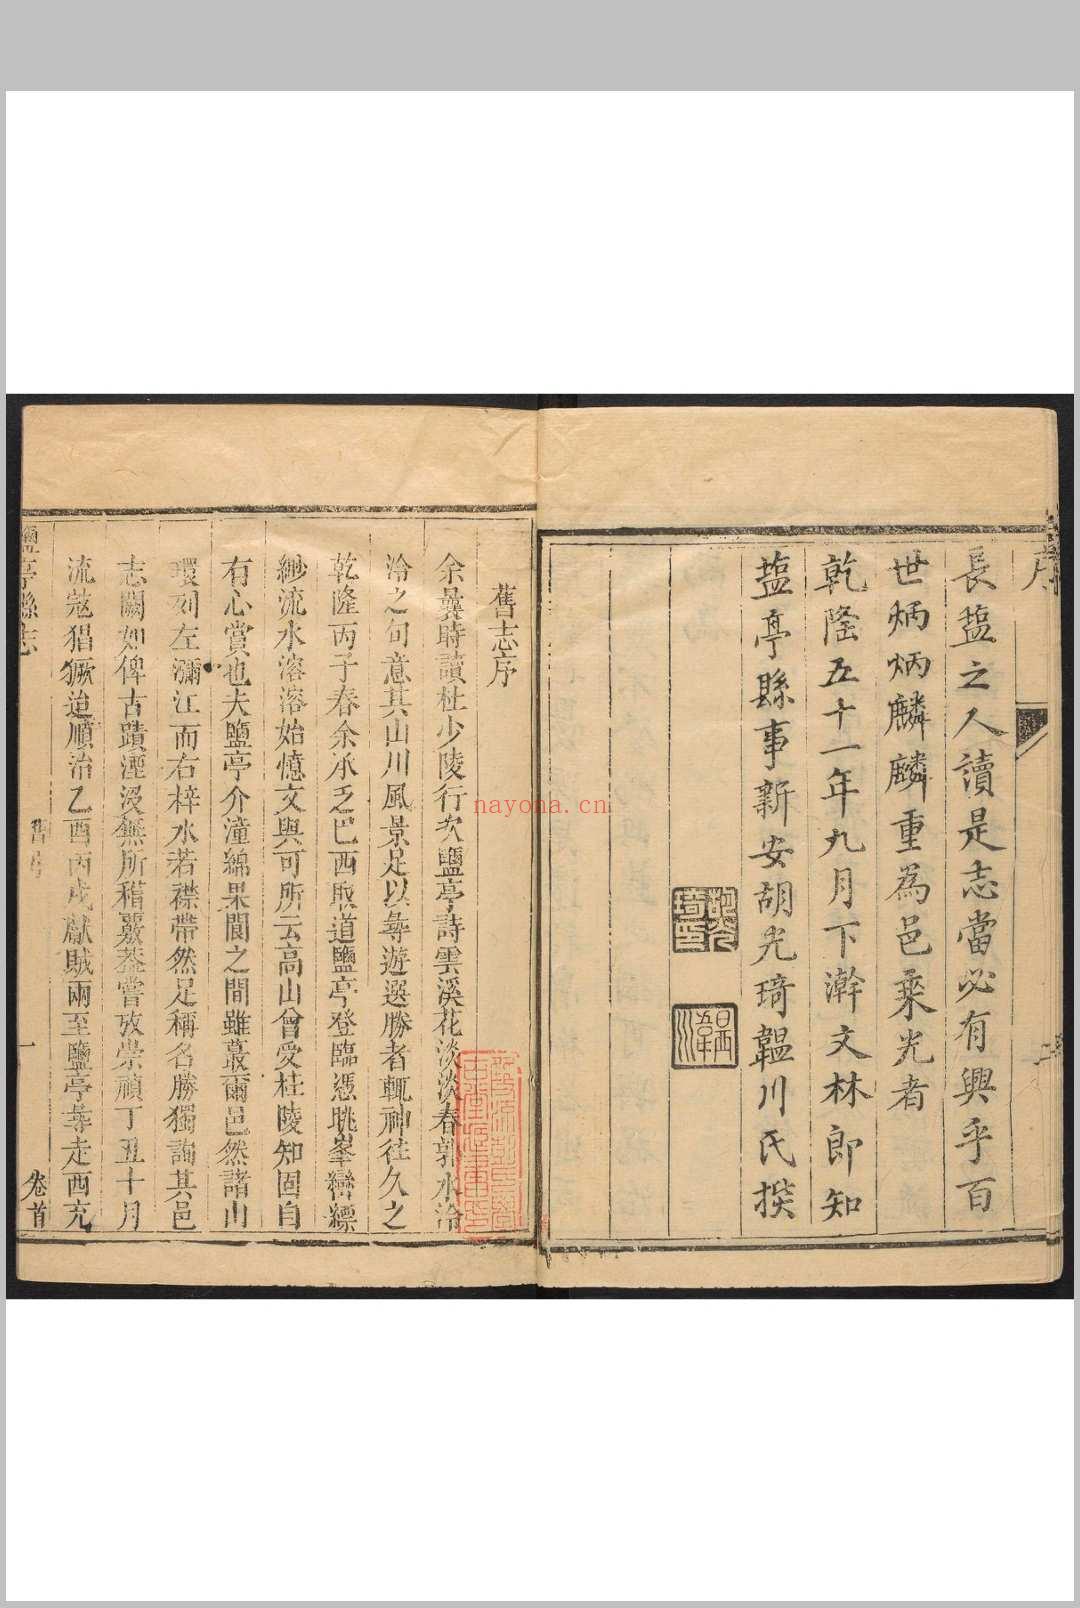 序
長盬之人讀是志當必有興乎百
世炳炳麟麟重為邑乗光者
乾隆五十一年九月下澣文林郎知
盬亭縣事新安胡光琦韞川氏撰
舊志序
余曩時讀杜少陵行次鹽亭詩雲溪花淡淡春郭水泠
泠之句意其山川風景足以尋遊選勝者輒神往久之
乾隆丙子春余承乏巴西取道鹽亭登臨憑眺峯巒縹
緲流水溶溶始憶文與可所云高山曾受杜陵知固自
有心賞也夫鹽亭介潼綿果閬之間雖蕞爾邑然諸山
環列左瀰江而右梓水若襟帶然足稱名勝獨詢其邑
志闕如俾古蹟湮沒無所稽覈葢嘗攷崇禎丁丑十月
流宼猖獗迨順治乙酉丙戌獻賊兩至鹽亭尋走西充
鹽亭縣志
舊序
一
卷首
nayona.cn